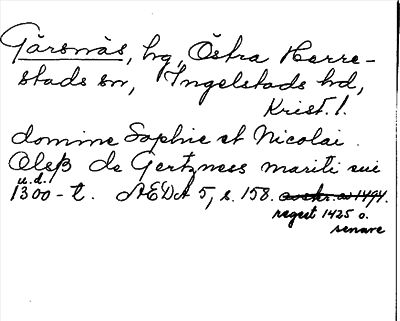 Gärsnäs, hg, Östra Herre-
stads sn, Ingelstads hd,
Krist. l.
domine Sophie et Nicolai
Oleß de Gertzness mariti sui
u.d.
1300-t. AEDA 5, s. 158. avskr. av 1494.
regest 1425 o.
senare